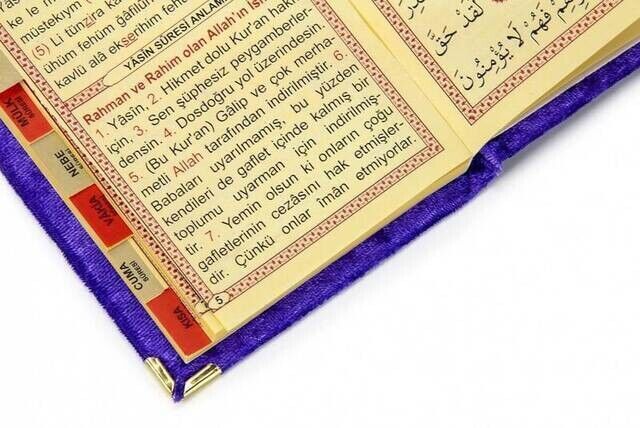 ke le m
müstekıym
(5) Li tünzira ka
ühüm fehüm ğâfilûn
kavlü alâ ekserihim fehü
YÂSİN SÛRESİ ANLAM
Rahman ve Rahim olan Allah'ın is
1. Yâsîn, 2. Hikmet dolu Kur'an hakkı
için, 3. Sen şüphesiz peygamberler-
densin. 4. Dosdoğru yol üzerindesin.
5. (Bu Kur'an) Gâlip ve çok merha-
metli Allah tarafından indirilmiştir. 6.
Babaları uyarılmamış, bu yüzden
kendileri de gaflet içinde kalmış bir
toplumu uyarman için indirilmiş-
tir. 7. Yemin olsun ki onların çoğu
gafletlerinin cezâsını hak etmişler-
dir. Çünkü onlar îmân etmiyorlar.
5
لَقَدْ حَقَّ
فَهُمْ لَا يُؤْمِنُونَ
MÜLK
SÛRESİ
NEBE
VAKIA
CUMA
SÛRESİ
KISA